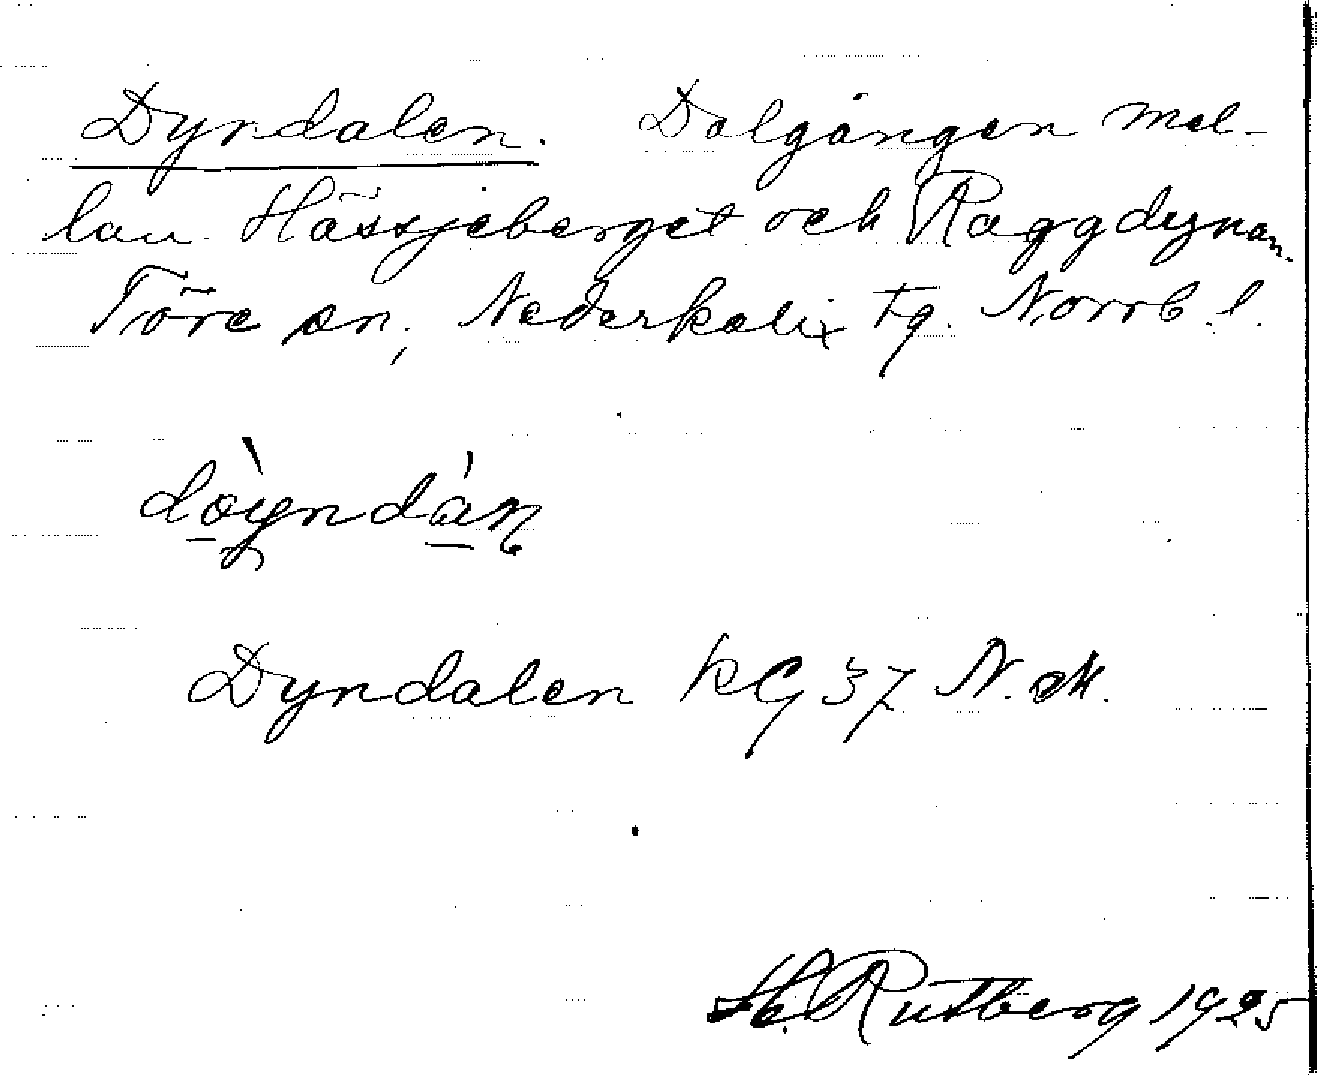 Dyndalen. Dalgången mel-
lan Hässjeberget och Raggdynan.
Töre sn, Nederkalix tg. Norrb. l.
dòyndàn
Dyndalen kG 37 N.
H. Rutberg 1925